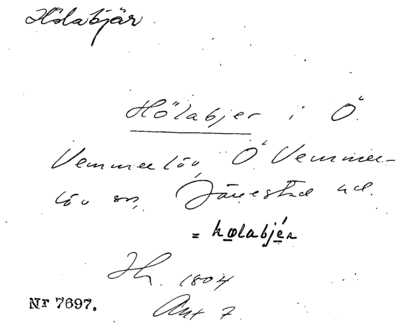 Hölabjär
Hölabjer i Ö
Vemmerlöv, Ö Vemmer-
löv sn, Järrestad hd.
= hølabjér
1804
Ant 7
Nr 7697.